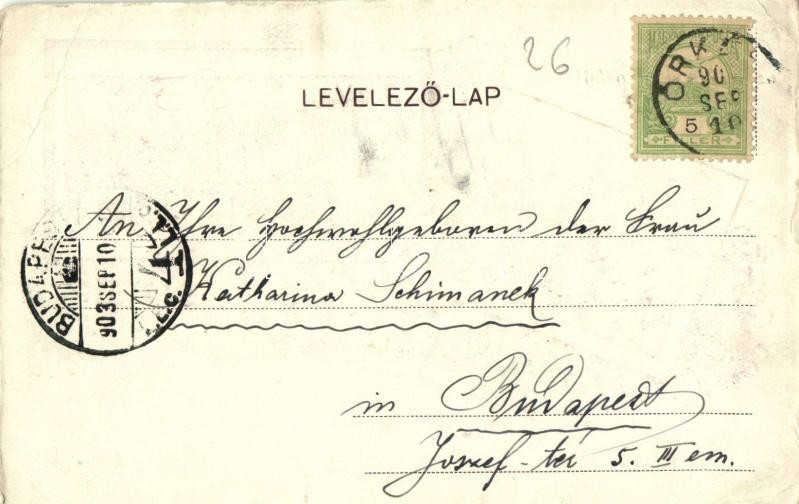 26
LEVELEZŐ-LAP
ÖRK
90
SEP
10
5
FILLER
An Ihre Hochwohlgeboren der Frau
Katharina Schimanek
in Budapest
József-tér 5. III em.
BUDAPEST
903 SEP 10